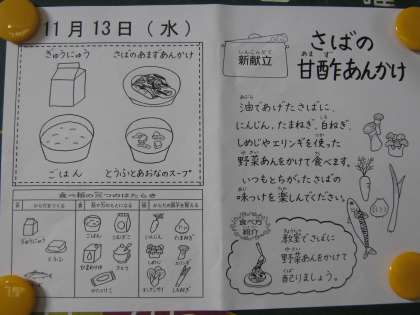 11月13日(水)
ぎゅうにゅう
さばのあまずあんかけ
ごはん
とうふとあおなのスープ
食べ物の三つのはたらき
からだをつくる
熱や力のもとになる
からだの調子を整える
ぎゅうにゅう
とうふ
ごはん
こむぎこ
ごまあぶら
さとう
かたくりこ
にんじん
たまねぎ
しめじ
エリンギ
チンゲンサイ
しんこんだて
新献立
さばの
あまず
甘酢あんかけ
あぶら
油であげたさばに、
にんじん、たまねぎ、白ねぎ、
しめじやエリンギを使った
やさい
野菜あんをかけて食べます。
いつもとちがったさばの
味つけを楽しんでください。
食べ方
しょうかい
紹介
きょうしつ
教室でさばに
やさい
野菜あんをかけて
くば
配りましょう。